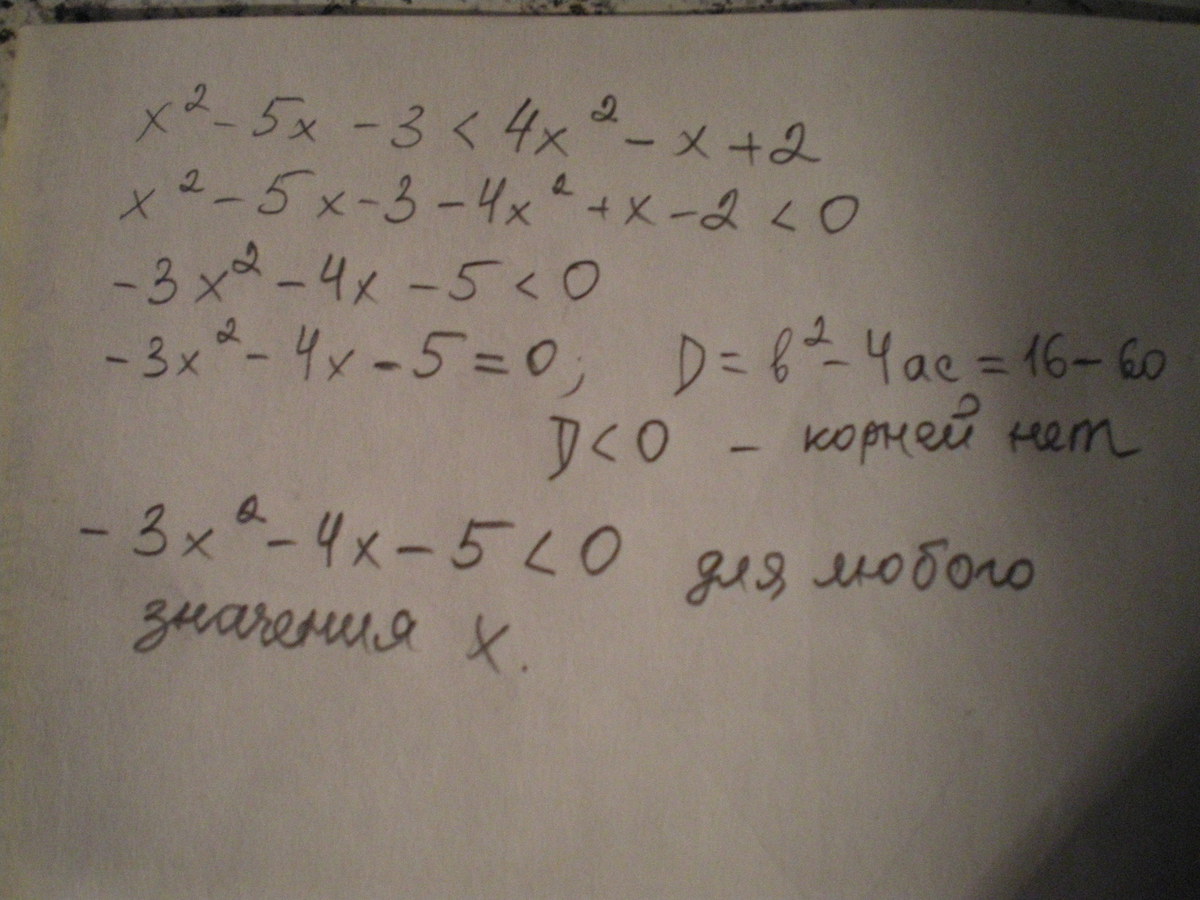 x² - 5x - 3 < 4x² - x + 2
x² - 5x - 3 - 4x² + x - 2 < 0
-3x² - 4x - 5 < 0
-3x² - 4x - 5 = 0; D = в² - 4ас = 16 - 60
D < 0 - корней нет
-3x² - 4x - 5 < 0 для любого
значения x.